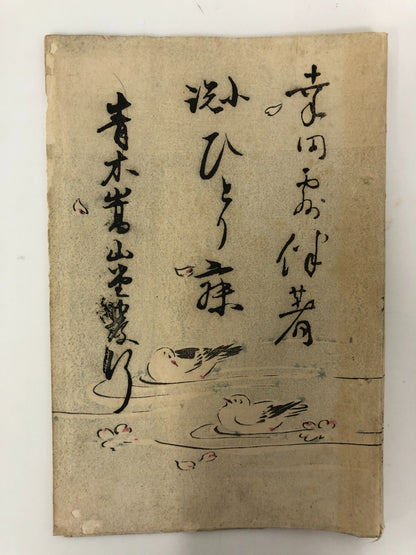 幸田露伴著
小説
ひとり寐
青木嵩山堂發行